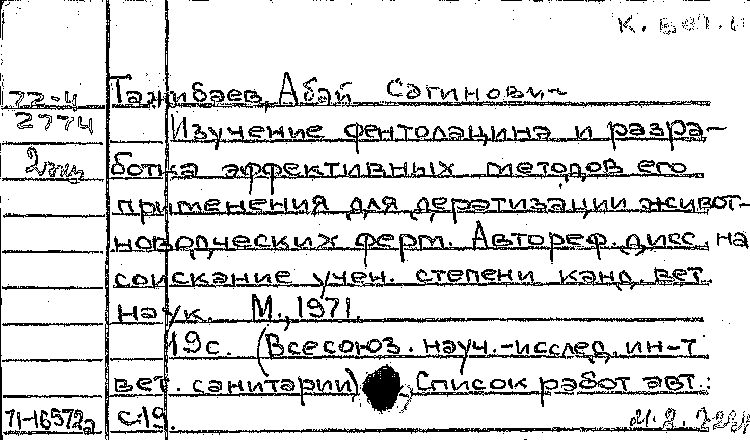 К. вет. н
72-4
2774
2 экз
Тажибаев, Абай Сагинович
Изучение фентолацина и разра-
ботка эффективных методов его
применения для дератизации живот-
новодческих ферм. Автореф. дисс. на
соискание учен. степени канд. вет.
наук. М., 1971.
19 с. (Всесоюз. науч.-исслед. ин-т
вет. санитарии) Список работ авт.:
с. 19.
71-16572а